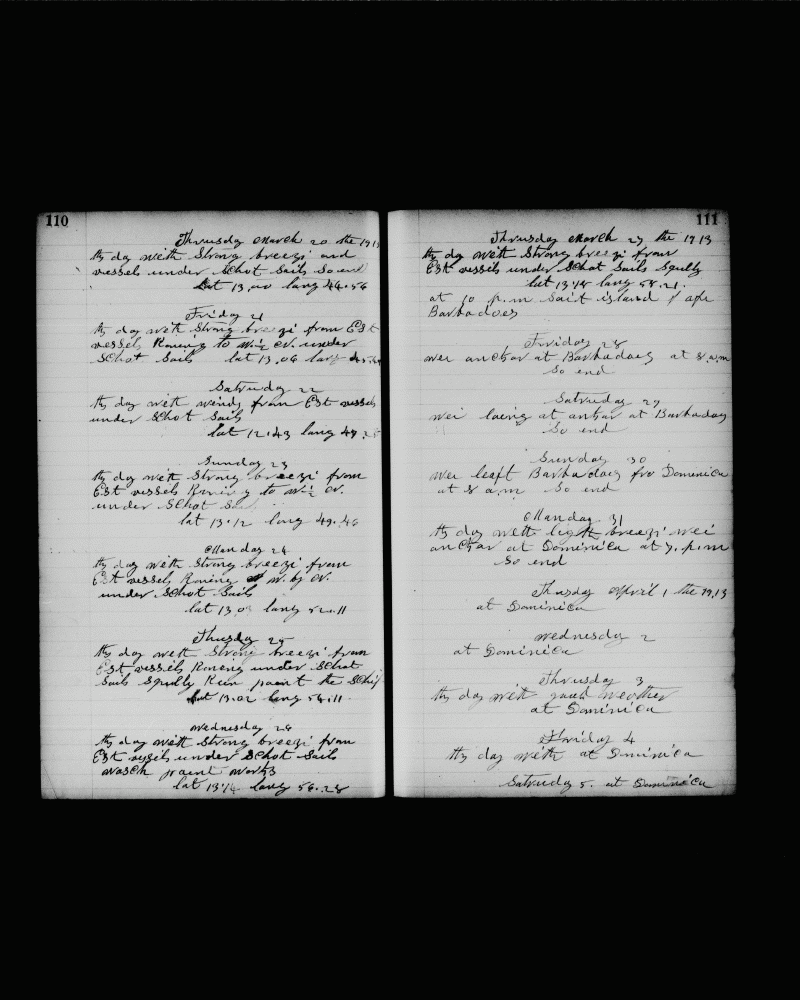 110
Thrusday March 20 the 1913
th day with Strong breezi and
vessels under Schot Sails So end
Lat 13.00 lang 44.56
Friday 21
th day with Strong breezi from Est
vessels Runing to W.½ N. under
Schot Sails lat 13.06 lang
Satruday 22
th day with winds from Est vessels
under Schot Sails
lat 12.43 lang 47.25
Sunday 23
th day with Strong breezi from
Est vessels Runing to W.½ N.
under Schot Sa
lat 13.12 lang 49.46
Manday 24
th day with Strong breezi from
Est vessels Runing W. by N.
under Schot Sails
lat 13.03 lang 52.11
Thusday 25
th day with Strong breezi from
Est vessels Runing under Schot
Sails Sqully Kun paint the Schip
lat 13.02 lang 54.11
Wednesday 26
th day with Strong breezi from
Est vessels under Schot Sails
wasch paint works
lat 13.14 lang 56.28
111
Thrusday March 27 the 1913
th day with Strong breezi from
Est vessels under Schot Sails Sqully
lat 13.18 lang 58.21
at 10 p.m Sait island of
Barbadoes
Friday 28
wer anchar at Barbadoes at 8 a.m
So end
Satruday 29
wei laing at anchar at Barbadoes
So end
Sunday 30
wer leaft Barbadoes fro Daminica
at 8 a.m So end
Manday 31
th day with light breezi wei
anchar at Daminica at 7. p.m
So end
Thusday April 1 the 1913
at Daminica
Wednesday 2
at Daminica
Thrusday 3
th day with gaud weather
at Daminica
Friday 4
th day with at Dminica
Satruday 5. at Daminica